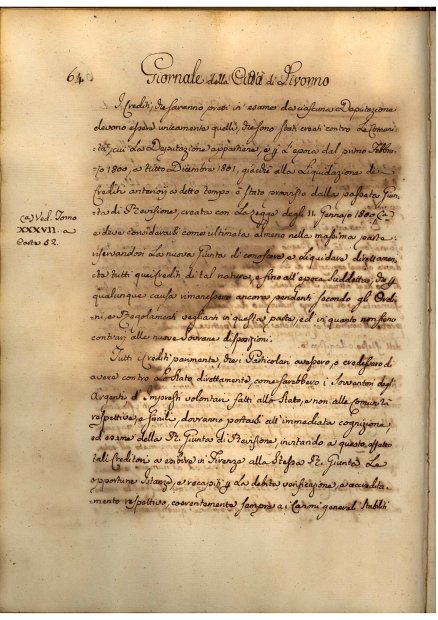 64
Giornale della Città di Livorno
I Crediti, che saranno presi in esame da ciascuna Deputazione
devono essere unicamente quelli, che sono stati creati contro Le Comuni
tà, cui La Deputazione appartiene, e p. l'epoca dal primo Febbra
jo 1800, a tutto Dicembre 1801, giacchè alla Liquidazione de
Crediti anteriori a detto tempo è stato provvisto dalla passata Giun
ta di Revisione, creata con La Legge degli 11. Gennajo 1800 (a)
e deve considerarsi come ultimata almeno nella massima parte
riservandosi La nuova Giunta di conoscere, e Liquidare direttame
te tutti quei Crediti di tal natura, e fino all'epoca suddetta, che p.
qualunque causa rimanessero ancora pendenti secondo gli Ordi
ni, e Regolamenti veglianti in questa parte, ed in quanto non siano
contrarj alle nuove Sovrane disposizioni.
(a) Ved. Tomo
XXXVII. a
Carta 52.
Tutti i Crediti parimente, che i Particolari avessero, o credessero di
avere contro Lo Stato direttamente, come sarebbero i Sovventori degli
Argenti, d'Imprestiti volontarj fatti allo Stato, e non alle Comunità
respettive, e simili, dovranno portarsi all'immediata cognizione
ed esame della R. Giunta di Revisione, invitando a questo effetto
tali Creditori a esibire in Firenze alla Stessa R. Giunta Le
opportune Istanze, e recapiti p. La debita verificazione, e accredita
mento respettivo, coerentemente sempre a i Canoni generali Stabiliti